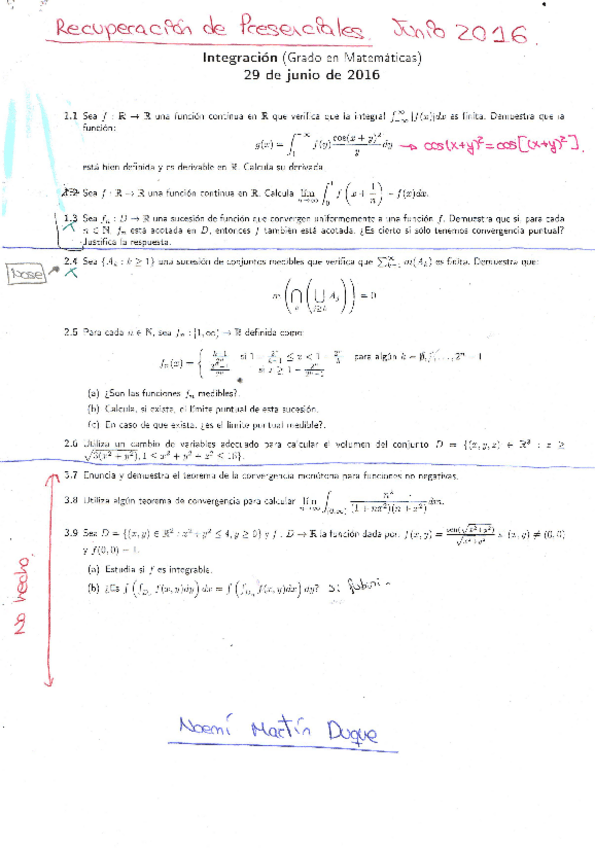 Recuperación de Presenciales. Junio 2016.
Integración (Grado en Matemáticas)
29 de junio de 2016
1.1 Sea f : ℝ → ℝ una función continua en ℝ que verifica que la integral ∫_{-∞}^{∞} |f(x)|dx es finita. Demuestra que la
función:
g(x) = ∫_1^{+∞} f(y) cos(x + y)²/y dy → cos(x+y)² = cos[(x+y)²].
está bien definida y es derivable en ℝ. Calcula su derivada
1.2 Sea f : ℝ → ℝ una función continua en ℝ. Calcula lim_{n→∞} ∫_0^1 f(x + 1/n) − f(x)dx.
1.3 Sea fₙ : D → ℝ una sucesión de función que convergen uniformemente a una función f. Demuestra que si, para cada
n ∈ ℕ, fₙ está acotada en D, entonces f también está acotada. ¿Es cierto si sólo tenemos convergencia puntual?
Justifica la respuesta.
2.4 Sea {Aₖ : k ≥ 1} una sucesión de conjuntos medibles que verifica que ∑_{k=1}^{∞} m(Aₖ) es finita. Demuestra que:
nose
m(⋂(⋃ Aⱼ)) = 0
2.5 Para cada n ∈ ℕ, sea fₙ : [1, ∞) → ℝ definida como
fₙ(x) = { si para algún k =
si
(a) ¿Son las funciones fₙ medibles?.
(b) Calcula, si existe, el límite puntual de esta sucesión.
(c) En caso de que exista, ¿es el límite puntual medible?.
2.6 Utiliza un cambio de variables adecuado para calcular el volumen del conjunto D = {(x, y, z) ∈ ℝ³ : z ≥
√3(x² + y²), 1 ≤ x² + y² + z² ≤ 16}.
3.7 Enuncia y demuestra el teorema de la convergencia monótona para funciones no negativas.
3.8 Utiliza algún teorema de convergencia para calcular lim_{n→∞} ∫_{(0,∞)} n²/((1 + nx²)(n + x²)) dx.
3.9 Sea D = {(x, y) ∈ ℝ² : x² + y² ≤ 4, y ≥ 0} y f : D → ℝ la función dada por: f(x, y) = sen(√(x²+y²))/√(x²+y²) (x, y) ≠ (0, 0)
y f(0, 0) = 1.
(a) Estudia si f es integrable.
(b) ¿Es ∫(∫ f(x, y)dy) dx = ∫(∫ f(x, y)dx) dy? si fubini
No hecho
Noemí Martín Duque